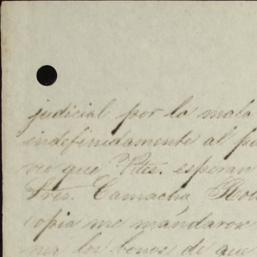 judicial por la mala
indefinidamente al
que Vtes. esperan
Sres. Camacho
copia me mandaron
los bonos de que